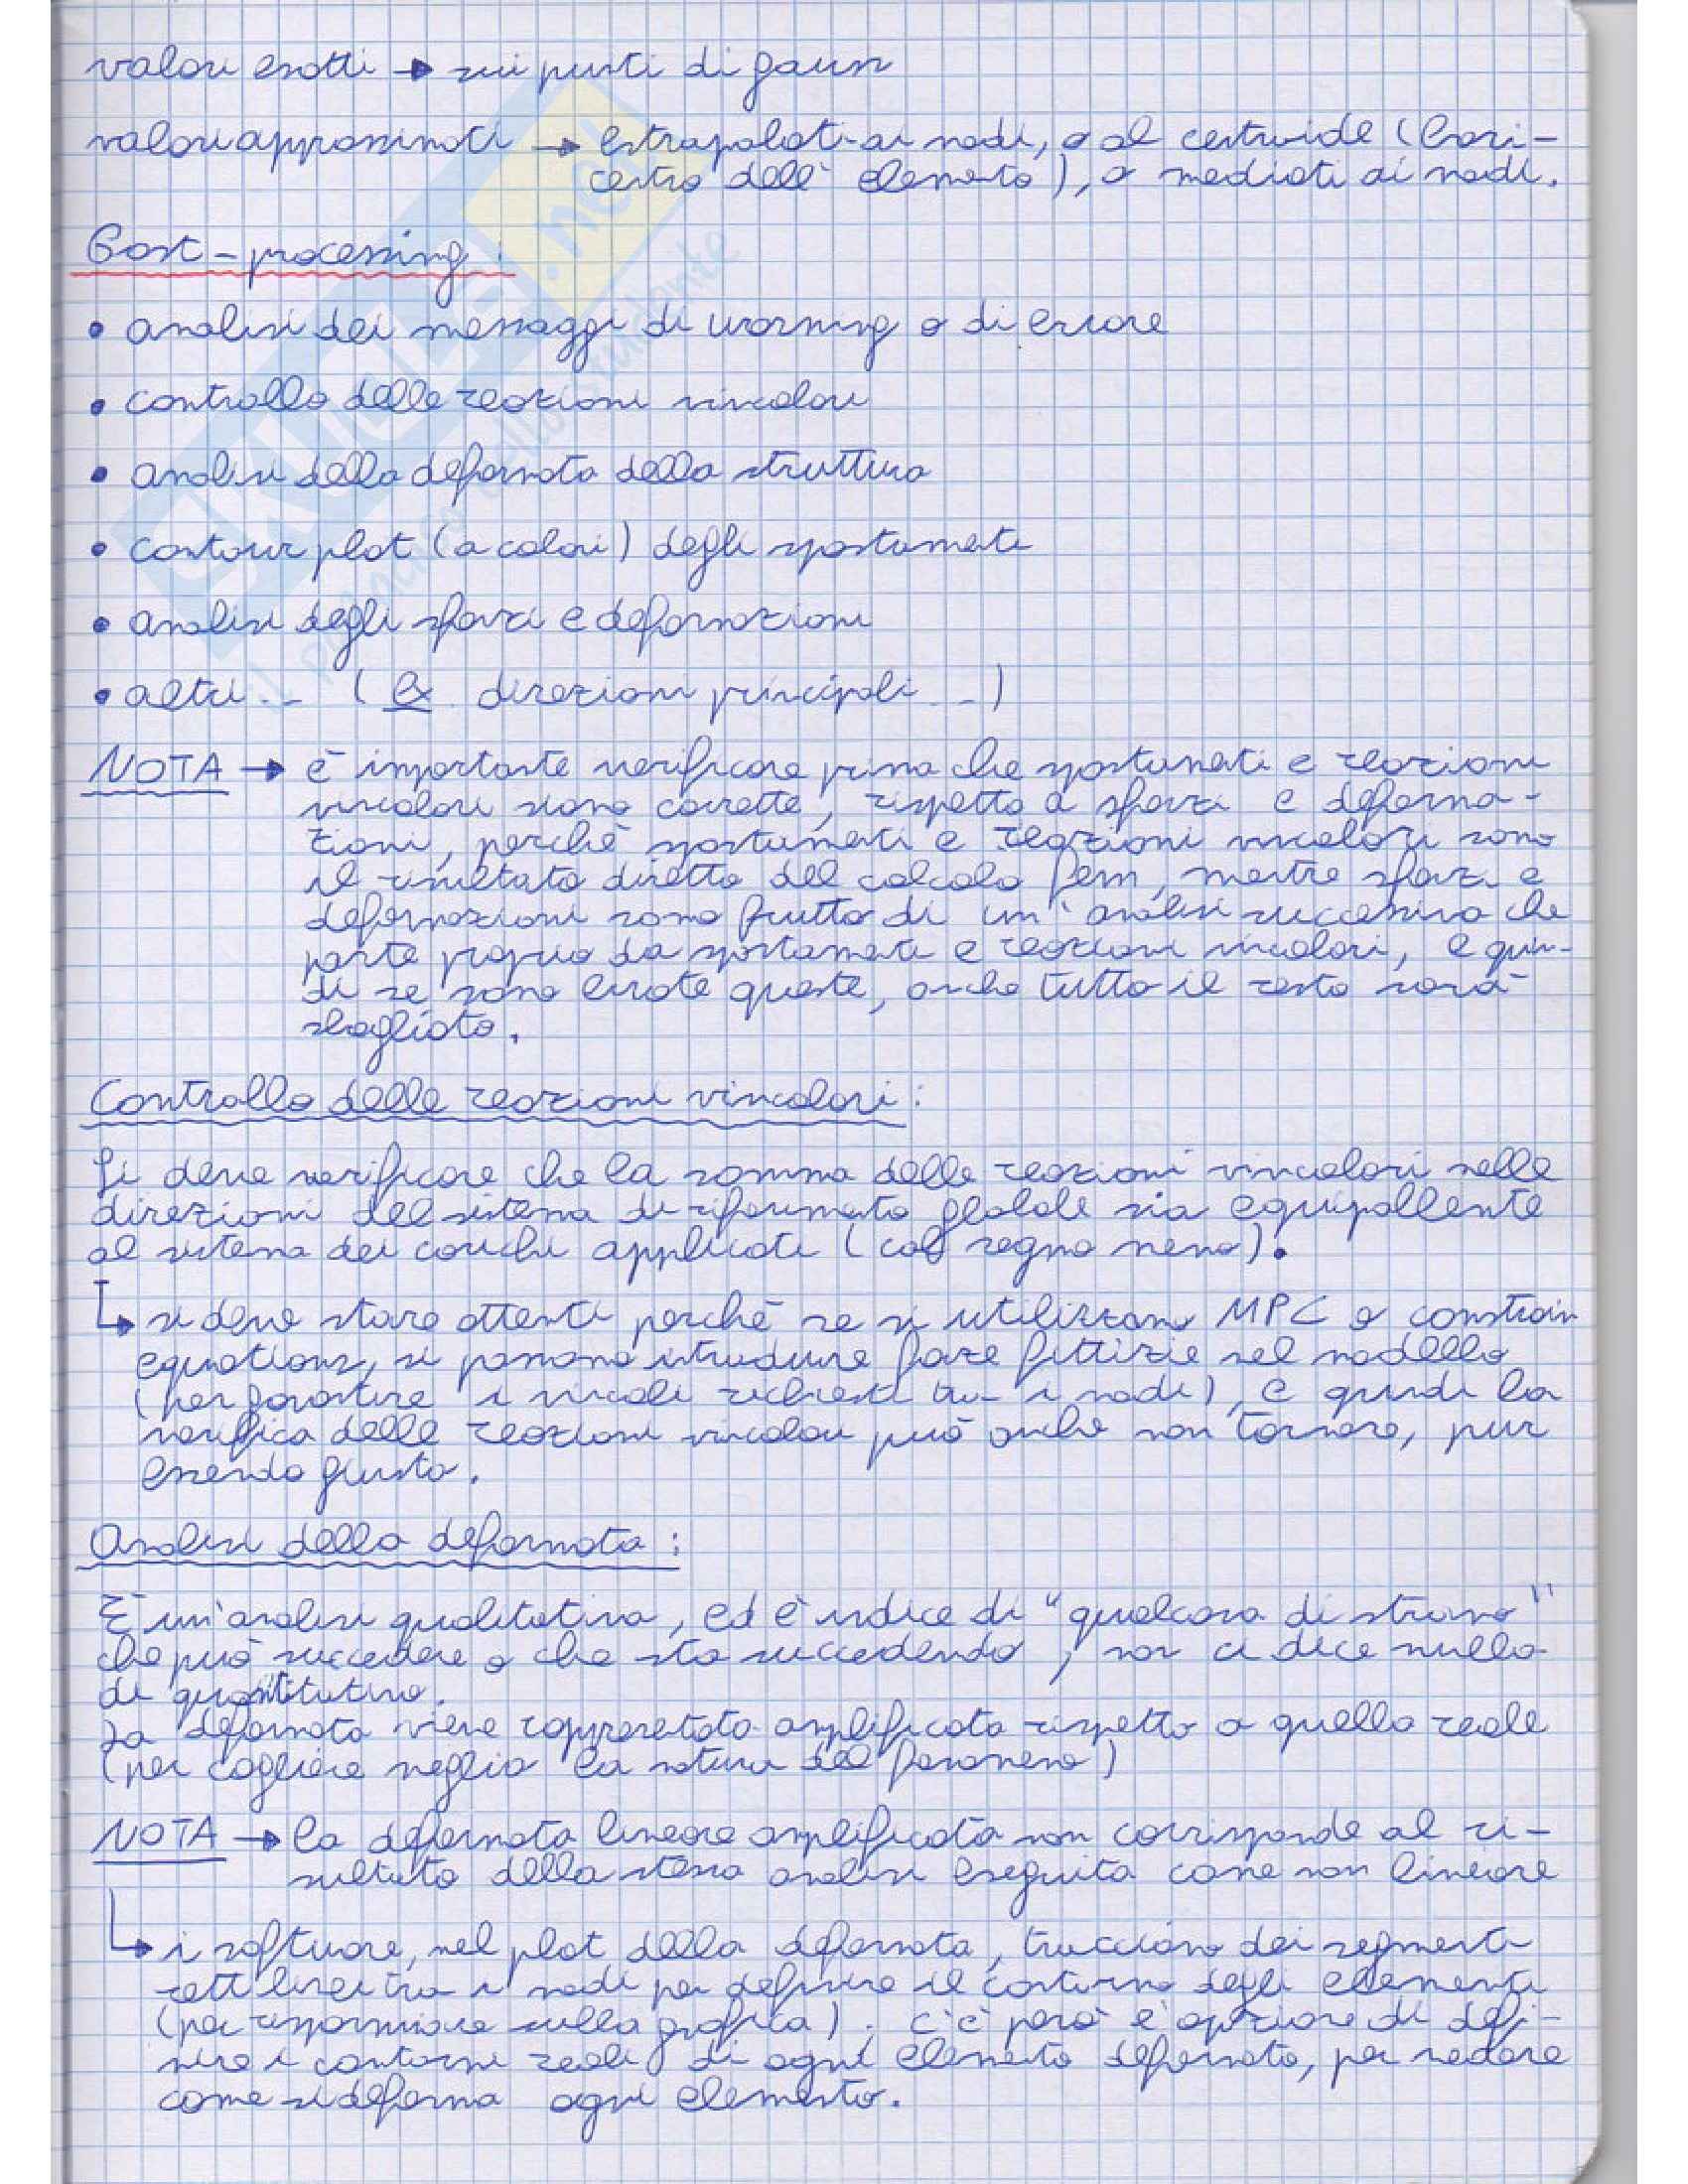 valori esatti → sui punti di gauss
valori approssimati → estrapolati ai nodi, o al centroide (bari-
centro dell'elemento), o mediati ai nodi.
Post-processing:
• analisi dei messaggi di warning o di errore
• controllo delle reazioni vincolari
• analisi della deformata della struttura
• contour plot (a colori) degli spostamenti
• analisi degli sforzi e deformazioni
• altri... (ex. direzioni principali...)
NOTA → è importante verificare prima che spostamenti e reazioni
vincolari siano corrette, rispetto a sforzi e deforma-
zioni, perchè spostamenti e reazioni vincolari sono
il risultato diretto del calcolo fem, mentre sforzi e
deformazioni sono frutto di un'analisi successiva che
parte proprio da spostamenti e reazioni vincolari, e quin-
di se sono errate queste, anche tutto il resto sarà
sbagliato.
Controllo delle reazioni vincolari:
Si deve verificare che la somma delle reazioni vincolari nelle
direzioni del sistema di riferimento globale sia equipollente
al sistema dei carichi applicati (col segno meno).
↳ si deve stare attenti perchè se si utilizzano MPC o constrain
equations, si possono introdurre forze fittizie nel modello
(per garantire i vincoli richiesti tra i nodi), e quindi la
verifica delle reazioni vincolari può anche non tornare, pur
essendo giusta.
Analisi della deformata:
È un'analisi qualitativa, ed è indice di "qualcosa di strano"
che può succedere o che sta succedendo, non ci dice nulla
di quantitativo.
La deformata viene rappresentata amplificata rispetto a quella reale
(per cogliere meglio la natura del fenomeno)
NOTA → la deformata lineare amplificata non corrisponde al ri-
sultato della stessa analisi eseguita come non lineare
↳ i software, nel plot della deformata, tracciano dei segmenti
rettilinei tra i nodi per definire il contorno degli elementi
(per risparmiare sulla grafica). C'è però l'opzione di defi-
nire i contorni reali di ogni elemento deformato, per vedere
come si deforma ogni elemento.
SKUOLA.net